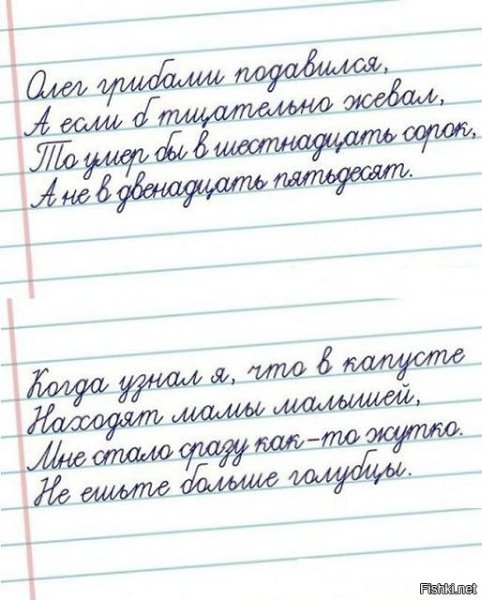 Олег грибами подавился,
А если б тщательно жевал,
То умер бы в шестнадцать сорок,
А не в двенадцать пятьдесят.
Когда узнал я, что в капусте
Находят мамы малышей,
Мне стало сразу как-то жутко.
Не ешьте больше голубцы.
Fishki.net